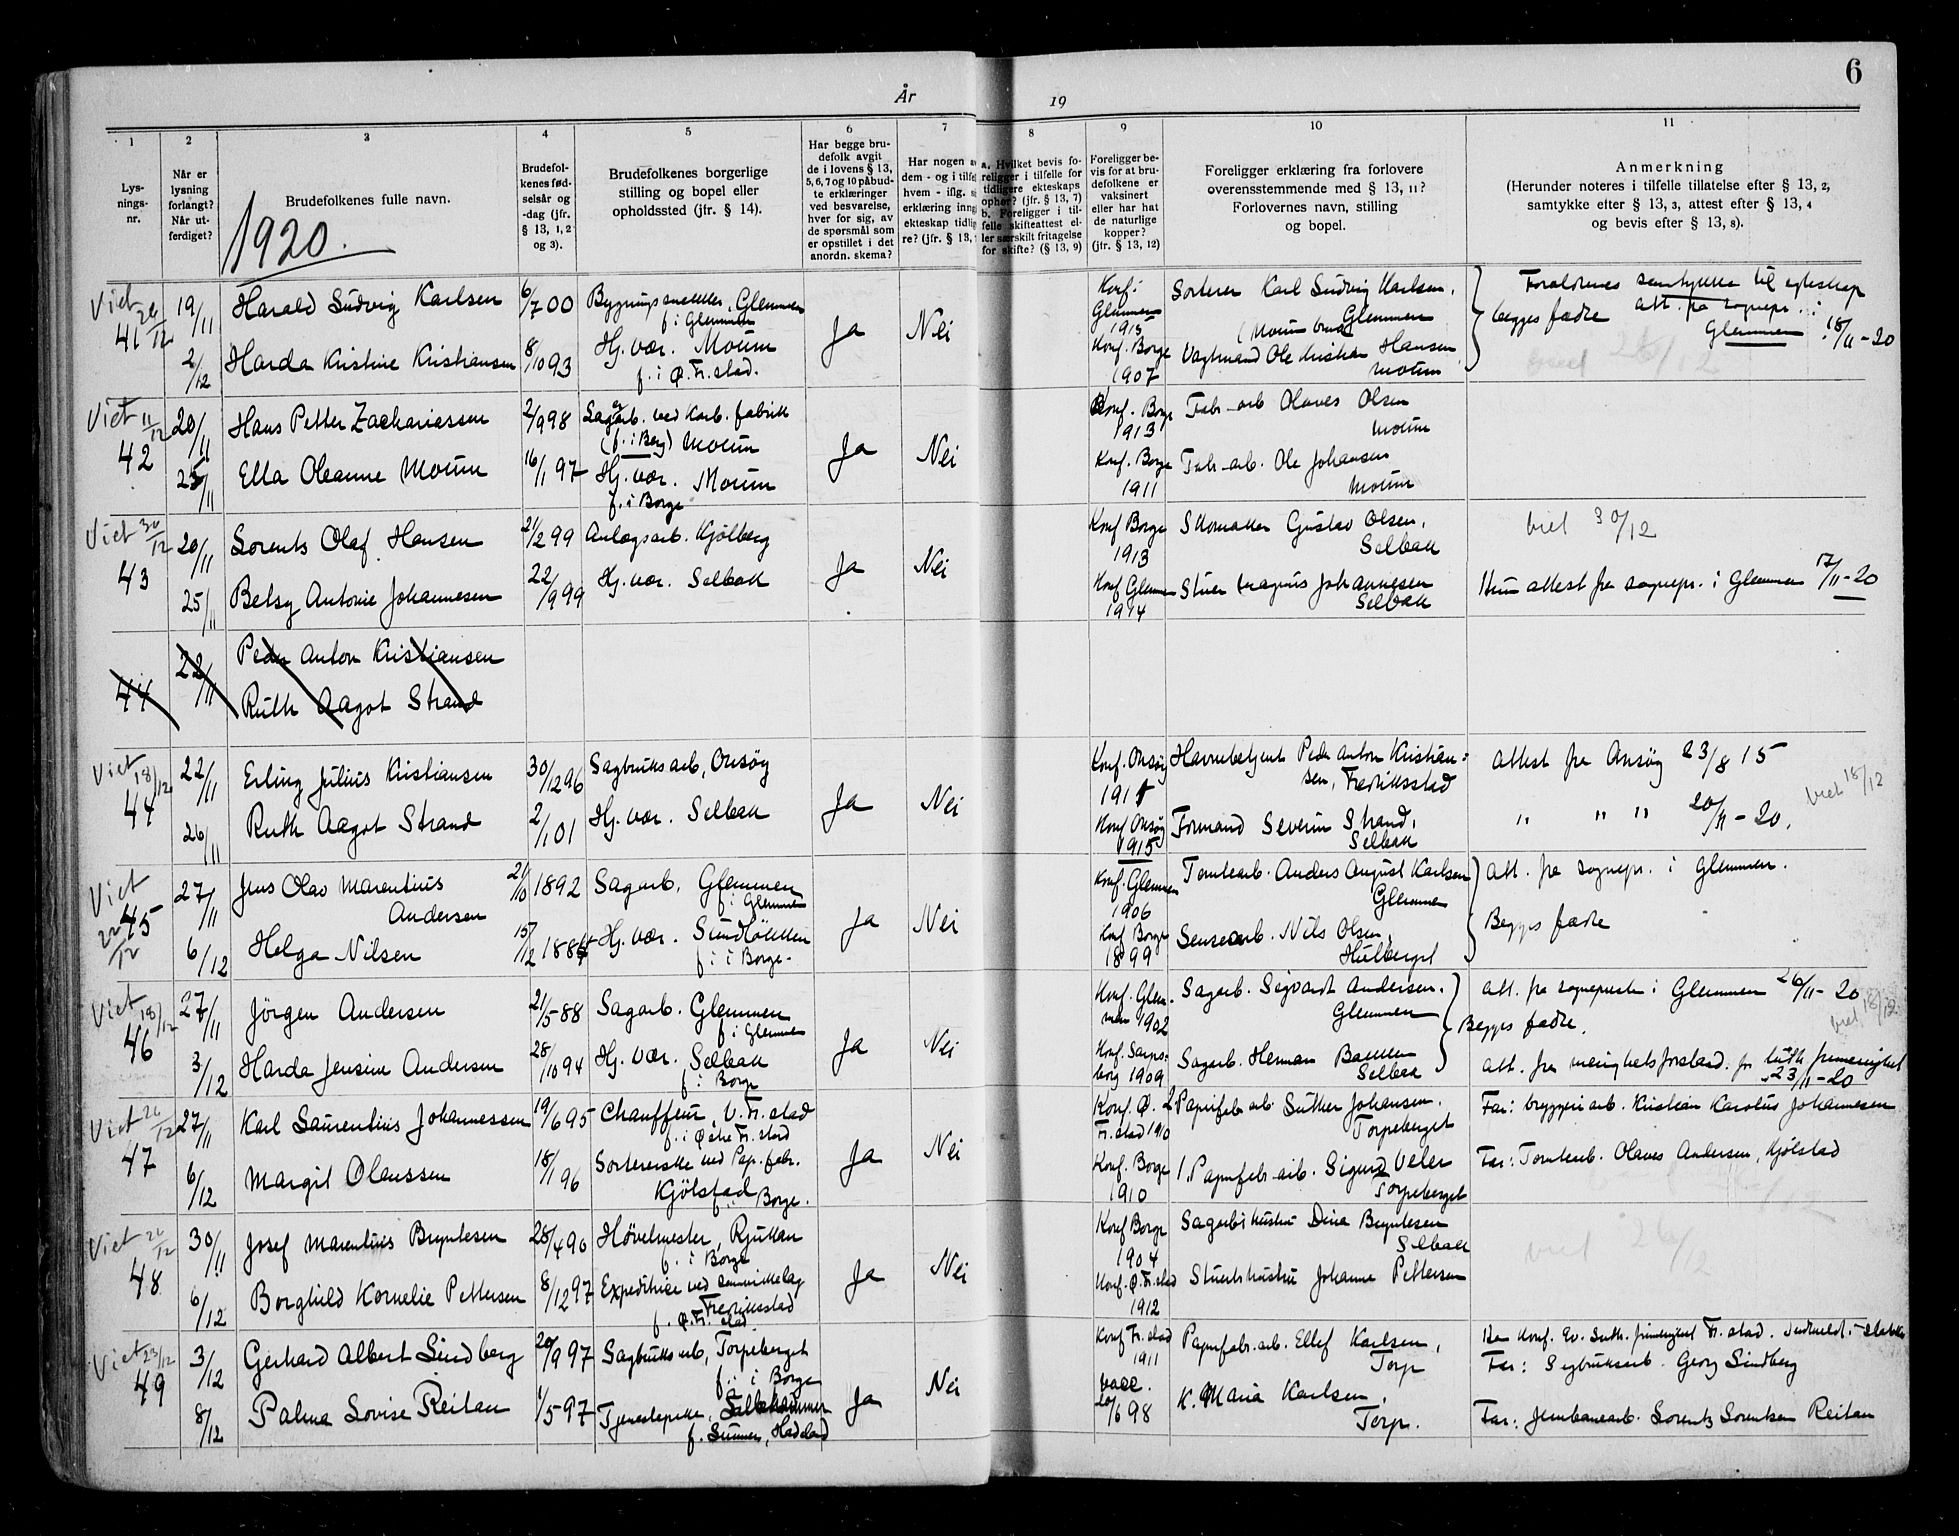 6
År
19
1
2
3
4
5
6
7
8
9
10
11
Lys-
nings-
nr.
Når er
lysning
forlangt?
Når ut-
ferdiget?
Brudefolkenes fulle navn.
1920.
Brudefol-
kenes fød-
selsår og
-dag (jfr.
§ 13, 1, 2
og 3).
Brudefolkenes borgerlige
stilling og bopel eller
opholdssted (jfr. § 14).
Har begge bru-
defolk avgit
de i lovens § 13,
5, 6, 7 og 10 påbud-
te erklæringer
ved besvarelse,
hver for sig, av
de spørsmål som
er opstillet i det
anordn. skema?
Har nogen a
dem - og i tilfel
hvem - iflg. s
erklæring inng
ekteskap tidlig
re? (jfr. § 13,
a. Hvilket bevis fo-
religger i tilfelle for
tidligere ekteskaps
ophør? (jfr. § 13, 7)
b. Foreligger i til-
felle skifteattest el-
ler særskilt fritagelse
for skifte? (§ 13, 9)
Foreligger be-
vis for at bru-
defolkene er
vaksinert
eller har hat
de naturlige
kopper?
(jfr. § 13, 12)
Foreligger erklæring fra forlovere
overensstemmende med § 13, 11?
Forlovernes navn, stilling
og bopel.
Anmerkning
(Herunder noteres i tilfelle tillatelse efter § 13, 2,
samtykke efter § 13, 3, attest efter § 13, 4
og bevis efter § 13, 8).
Viet 26/12
41
19/11
Harald Ludvig Karlsen
6/7 00
Glemmen
f. i Glemmen
Ja
Nei
Konf. i
Glemmen
1915
Sorterer Karl Ludvig Karlsen,
Glemmen
Foreldrenes samtykke til egteskap
begges fædre att. fra sognepr. i
Glemmen 18/11-20
2/12
Harda Kristine Kristiansen
8/10 93
Hj. vær. Moum
f. i Ø. Fr.stad.
Konf. Borge
1907
Vagtmand Ole Kristian Hansen
Moum
viet 26/12
Viet 11/12
42
20/11
Hans Petter Zachariassen
2/9 98
Sagarb. ved Karb. fabrik
(f. i Berg) Moum
Ja
Nei
Konf. Borge
1913
Fabr-arb Olaves Olsen
Moum
25/11
Ella Oleanne Moum
16/11 97
Hj. vær. Moum
f. i Borge
Konf. Borge
1911
Fabr-arb. Ole Johansen
Moum
Viet 30/12
43
20/11
Lorents Olaf Hansen
21/2 99
Anlægsarb. Kjölberg
Ja
Nei
Konf Borge
1913
Skomaker Gustav Olsen,
Selbak
viet 30/12
25/11
Betsy Antonie Johannesen
22/9 99
Hj. vær. Selbak
Konf Glemmen
1914
Stuer Magnus Johannesen
Selbak
Hun attest fra sognepr. i Glemmen 17/11-20
44
22/11
Peder Anton Kristiansen
Ruth Aagot Strand
Viet 18/12
44
22/11
Erling Julius Kristiansen
30/12 96
Sagbruksarb, Onsöy
Ja
Nei
Konf. Onsöy
1911
Havnebetjent Peder Anton Kristian-
sen, Fredriksstad
Attest fra Onsöy 23/8 15
viet 18/12
26/11
Ruth Aagot Strand
2/1 01
Hj. vær. Selbak
Konf Onsöy
1915
Formand Severin Strand,
Selbak
" " " 20/11-20.
Viet
22/12
45
27/11
Jens Olav Marentius
Andersen
21/10 1892
Sagarb. Glemmen
f. i Glemmen
Ja
Nei
Konf. Glemmen
1906
Tomtearb. Anders August Karlsen
Glemmen
Att. fra sognepr. i Glemmen.
Begges fædre
6/12
Helga Nilsen
15/12 1884
Hj. vær. Sundlökken
f. i Borge.
Konf Borge
1899
Nils Olsen,
Viet 18/12
46
27/11
Jörgen Andersen
21/5-88
Sagarb. Glemmen
f. i Glemmen
Ja
Nei
Konf. Glem-
men 1902
Sagarb. Sigvardt Andersen.
Glemmen
Att. fra sogneprest i Glemmen 26/11-20
Begges fædre.
viet 18/12
3/12
Harda Jensine Andersen
28/10 94
Hj. vær. Selbak
f. i Borge
Konf. Sarps-
borg 1909
Sagarb. Herman Bakken
Selbak
Att. fra menighetsforstand. for luth frimenighet
23/11-20
Viet 26/12
47
27/11
Karl Laurentius Johannessen
19/6 95
Chauffeur, V. Fr.stad
f. i Østre Fr.stad
Ja
Nei
Konf. Ø.
Fr.stad 1910
2. Papirfabr arb Luther Johansen.
Torpeberget
Far: bryggeriarb. Kristian Karolus Johannesen
6/12
Margit Olaussen
18/1 96
Sortererske ved Pap. fabr.
Kjölstad
f. i Borge.
Konf. Borge
1910
1. Papirfabr-arb. Sigurd Veler
Torpeberget
Far: Tomtearb. Olaves Andersen, Kjölstad
Viet 26/12
48
30/11
Josef Marentius Bryntesen
28/4 90
Hövelmester, Rjukan
f. i Borge
Ja
Nei
Konf Borge
1904
Sagarb's hustru Dina Bryntesen
Selbak
viet 26/12
6/12
Borghild Kornelie Pettersen
8/12 97
Expeditrice ved samvirkelag
Fredriksstad
f. Ø. Fr.stad
Konf. Ø. Fr.stad
1912
Stuerts hustru Johanne Pettersen
Viet 23/12
49
3/12
Gerhard Albert Lindberg
20/9 97
Sagbruksarb, Torpeberget
f. i Borge
Ja
Nei
Konf Fr.stad
1911
Papirfabr.arb. Ellef Karlsen,
Torp
Han Konf. Ev. Luth. frimenighet Fr.stad.
Far: Sagbruksarb. Georg Lindberg
8/12
Palma Lovise Reitan
1/5-97
Tjenestepike,
f. Gunnes, Hadeland
vacc.
20/6 98
K. Maria Karlsen,
Torp.
Far: Jernbanearb. Lorentz Lorentsen Reitan